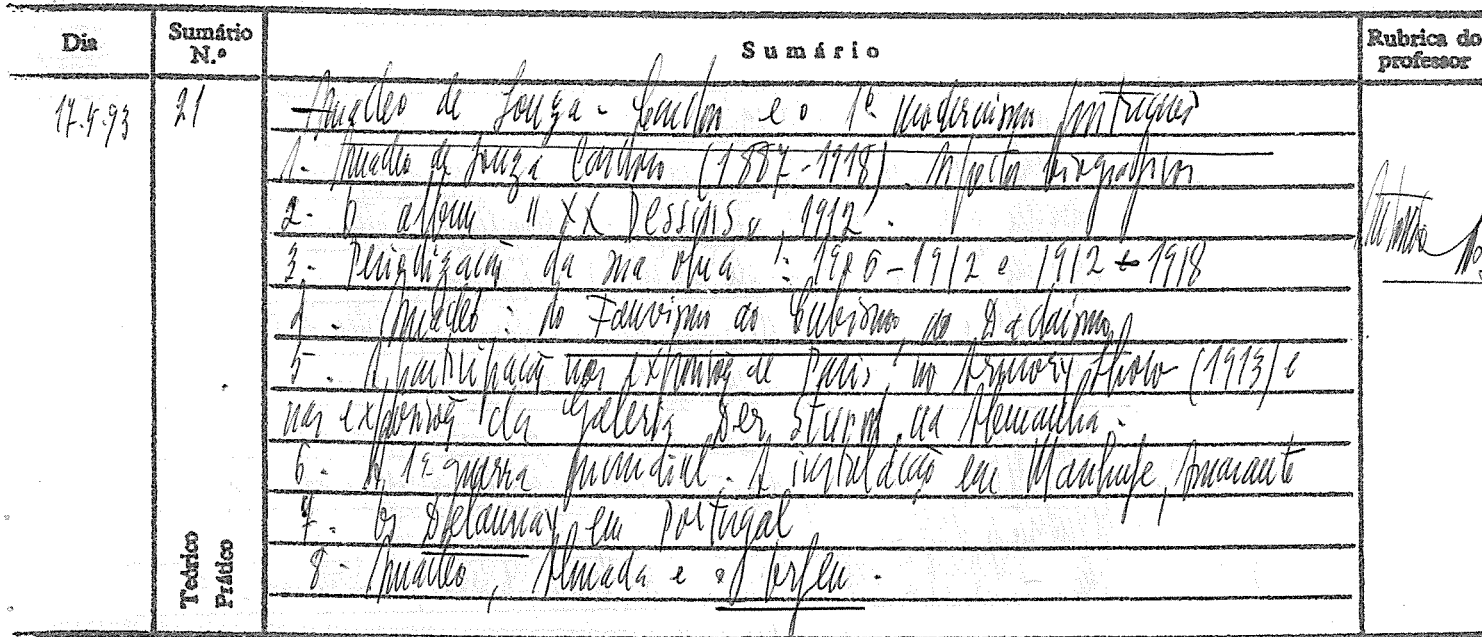 Dia Sumário N.º Sumário Rubrica do professor
17.5.93 21 Amadeo de Souza-Cardoso e o 1º modernismo português
1. Amadeo de Souza Cardoso (1887-1918). Aspectos biográficos
2- O álbum "XX Dessins", 1912.
3- Periodização da sua obra: 1906-1912 e 1912 1918
4. Amadeo: do Fauvismo ao Cubismo, ao Dadaísmo
5- A participação nas exposições de Paris, no Armory Show (1913) e
nas exposições da Galeria Der Sturm, na Alemanha.
6- A 1ª guerra mundial. A instalação em Manhufe, Amarante
7- Os Delaunay em Portugal
8- Amadeo, Almada e o Orfeu.
Teórico
Prático